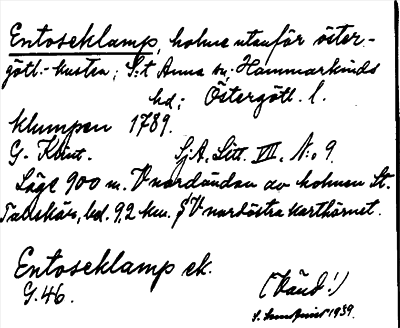 Entoseklamp, holme utanför öster-
götl.-kusten; S:t Anna sn; Hammarkinds
hd; Östergötl. l.
Klumpen 1789.
G. Klint. SjA, Litt. VII, N:o 9.
Läge 900 m. V nordändan av holmen St.
hd. 9,2 km. V nordöstra karthörnet.
Entoseklamp ek.
G.46. (Vänd!)
1939.